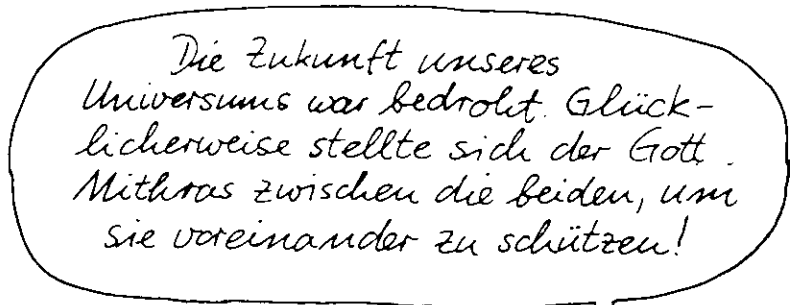 Die Zukunft unseres
Universums war bedroht. Glück-
licherweise stellte sich der Gott
Mithras zwischen die beiden, um
sie voreinander zu schützen!